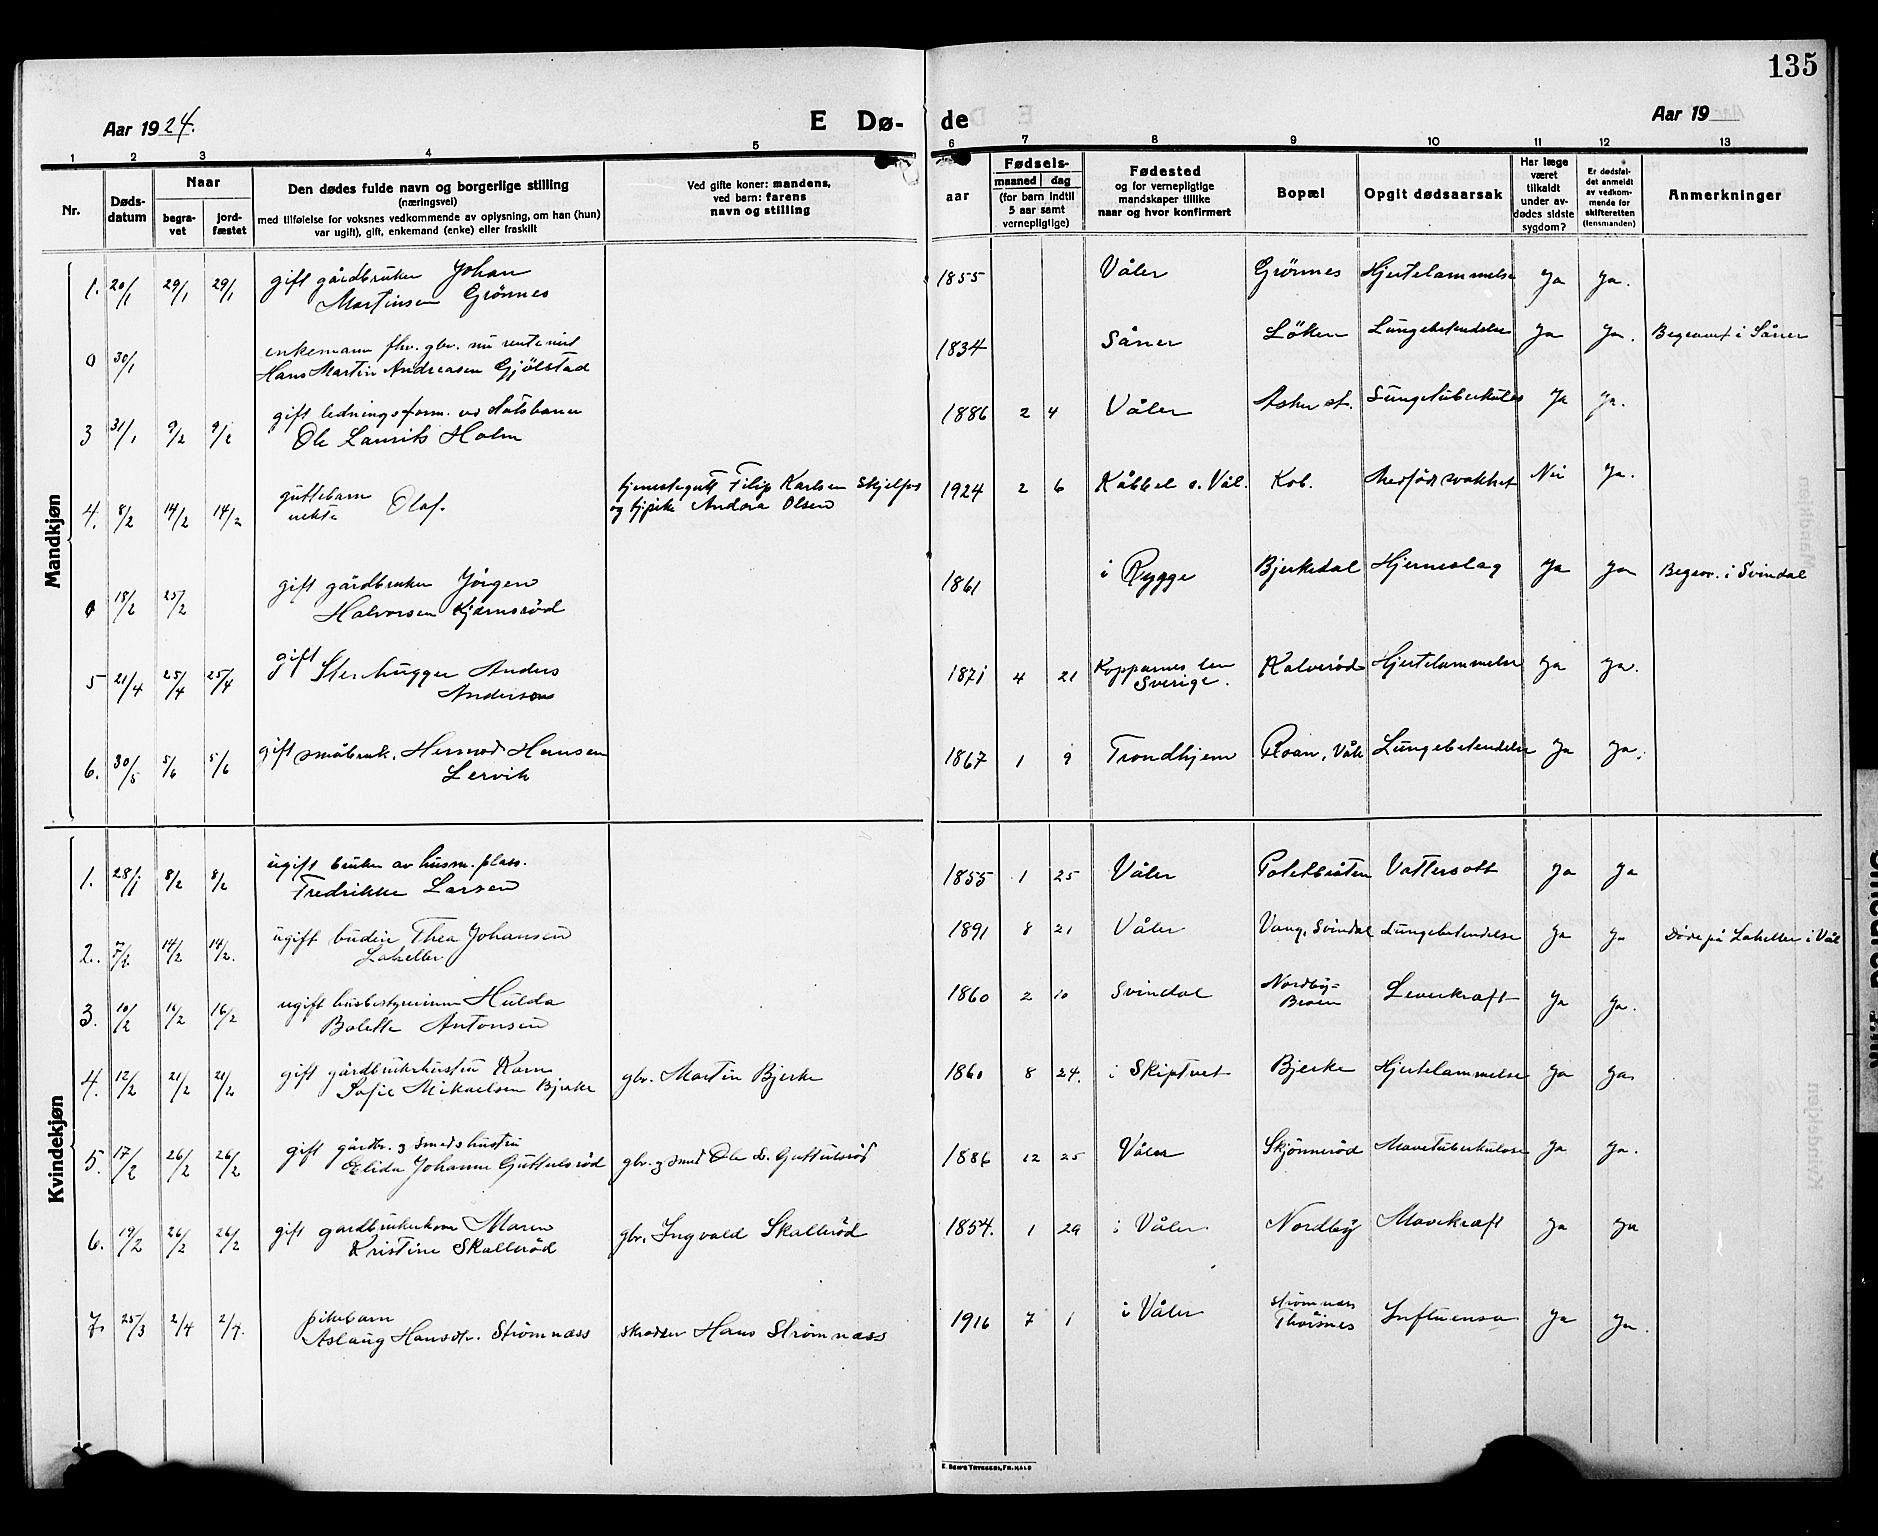 135
Aar 1924.
E Dø-
de
Aar 19
1 2 3 4 5 6 7 8 9 10 11 12 13
Nr.
Døds-
datum
Naar
begra-
vet
jord-
fæstet
Den dødes fulde navn og borgerlige stilling
(næringsvei)
med tilføielse for voksnes vedkommende av oplysning, om han (hun)
var ugift), gift, enkemand (enke) eller fraskilt
Ved gifte koner: mandens,
ved barn: farens
navn og stilling
aar
Fødsels-
maaned dag
(for barn indtil
5 aar samt
vernepligtige)
Fødested
og for vernepligtige
mandskaper tillike
naar og hvor konfirmert
Bopæl
Opgit dødsaarsak
Har læge
været
tilkaldt
under av-
dødes sidste
sygdom?
Er dødsfal-
det anmeldt
av vedkom-
mende for
skifteretten
(lensmanden)
Anmerkninger
Mandkjøn
1. 20/1 29/1 29/1 gift gårdbruker Johan
Martinsen Grönnes
1855 Våler Grönnes Hjertelammelse Ja Ja.
0 30/1 enkemann fhv. gbr. nu
Hans Martin Andreasen Gjölstad
1834 Såner Löken Lungebetendelse Ja Ja. Begravet i Såner
3 31/1 9/2 9/2 gift ledningsform. vd Statsbaner
Ole Laurits Holm
1886 2 4 Våler Asker st. Lungetuberkulos Ja Ja.
4. 8/2 14/2 14/2 guttebarn
uekte Olaf.
tjenestegutt Filip Karlsen
og Andora Olsen
1924 2 6 Kåbbel v. Vål. Kob. Medfødt svakhet Nei Ja.
0 18/2 25/2 gift gårdbruker Jörgen
Halvorsen Kjærnsröd
1861 i Rygge Bjerkedal Hjerneslag Ja Ja Begrav. i Svindal
5 21/4 25/4 25/4 gift
Stenhugger Anders
Anderson
1871 4 21 Kopparnes len
Sverige. Kalveröd Hjertelammelse Ja Ja.
6. 30/5 5/6 5/6 gift småbruk. Hermod Hansen
Lervik
1867 1 9 Trondhjem Roan, Vål. Lungebetendelse Ja Ja.
Kvindekjøn
1. 28/1 8/2 8/2 ugift bruker av husm. plass.
Fredrikke Larsen
1855 1 25 Våler Vattersott Ja Ja
2. 7/2 14/2 14/2. ugift budeie Thea Johansen
Lakeller
1891 8 21 Våler Vang, Svindal Lungebetendelse Ja Ja Døde på Lakeller i Vål
3. 10/2 16/2 16/2 ugift husbestyrerinne Hulda
Bolette Antonsen
1860 2 10 Svindal Nordby-
Braten Leverkræft Ja Ja.
4. 12/2 21/2 21/2 gift gårdbrukerhustru Karen
Sofie Mikaelsen Bjerke
gbr. Martin Bjerke
1860 8 24. i Skiptvet Bjerke Hjertelammelse Ja Ja
5. 17/2 26/2 26/2 gift gårdbr. og smedshustru
Elida Johanne Guttulsröd
gbr. og smed Ole S. Guttulsröd
1886 12 25 Våler Skjönneröd Mavetuberkulose Ja Ja.
6. 19/2 26/2 26/2 gift gardbrukerkone Maren
Kristine Skalleröd
gbr. Ingvald Skalleröd
1854. 1 29 i Våler Nordby Mavekræft Ja Ja
7 25/3 2/4 2/4. pikebarn
Aslaug Hansdtr. Strömnæss
skredder Hans Strömnæss
1916 7 1 i Våler Strömnæss
Thorsnes Influensa Ja Ja.
E. Sem's Trykkeri, Fr.hald